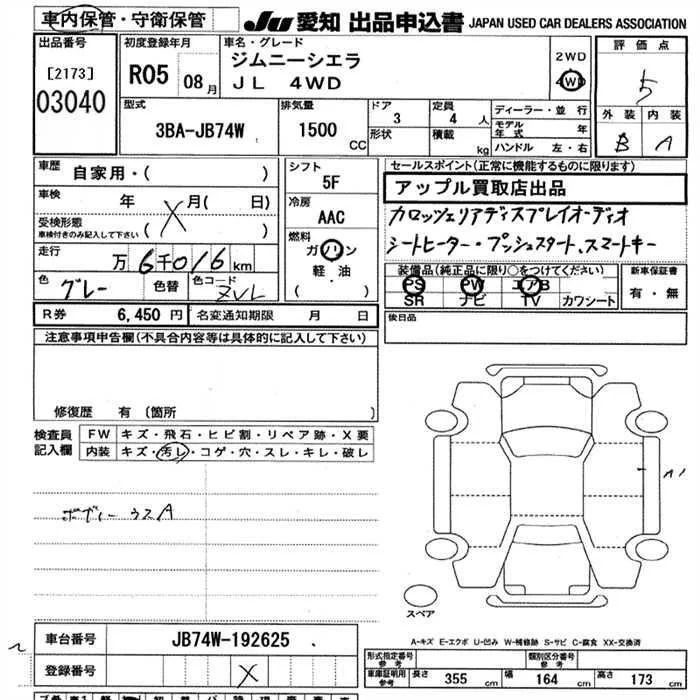 車内保管・守衛保管 JU 愛知 出品申込書 JAPAN USED CAR DEALERS ASSOCIATION
出品番号 [2173] 03040
初度登録年月 R05 08月
車名・グレード ジムニーシエラ
JL 4WD
2WD
4WD
評価点 5
外装 内装
B A
型式 3BA-JB74W
排気量 1500 CC
ドア 3
形状
定員 4 人
積載 kg
ディーラー・並行
モデル年式 年
ハンドル 左・右
車歴 自家用・( )
車検 年 X 月( 日)
受検形態
車検付きのみ記入して下さい ( )
走行 万 6千016 km
色 グレー 色替 色コード ZVL
シフト 5F
冷房 AAC
燃料 ガソリン
軽・油
( )
セールスポイント(正常に機能するものに限ります)
アップル買取店出品
カロッツェリアディスプレイオーディオ
シートヒーター・プッシュスタート、スマートキー
装備品(純正品に限り○をつけてください)
PS PW エアB
SR ナビ TV カワシート
新車保証書
有・無
R券 6,450円 名変通知期限 月 日
後日品
注意事項申告欄(不具合内容等は具体的に記入して下さい)
修復歴 有 (箇所 )
検査員記入欄
FW キズ・飛石・ヒビ割・リペア跡・X要
内装 キズ・汚レ・コゲ・穴・スレ・キレ・破レ
ボディーウスA
A1
スペア
A-キズ E-エクボ U-凹み W-補修跡 S-サビ C-腐食 XX-交換済
車台番号 JB74W-192625
登録番号 X
形式指定番号 参考
類別区分番号 参考
車庫証明用 参考 長さ 355 cm 幅 164 cm 高さ 173 cm